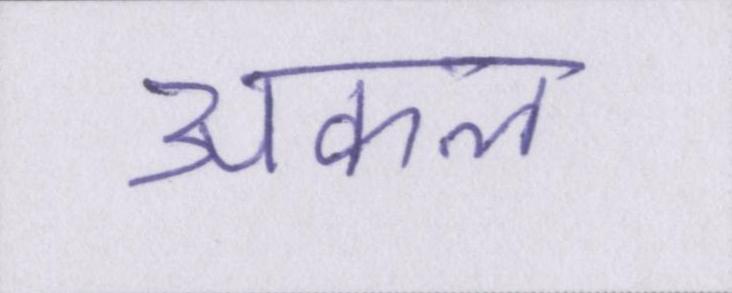 अकल